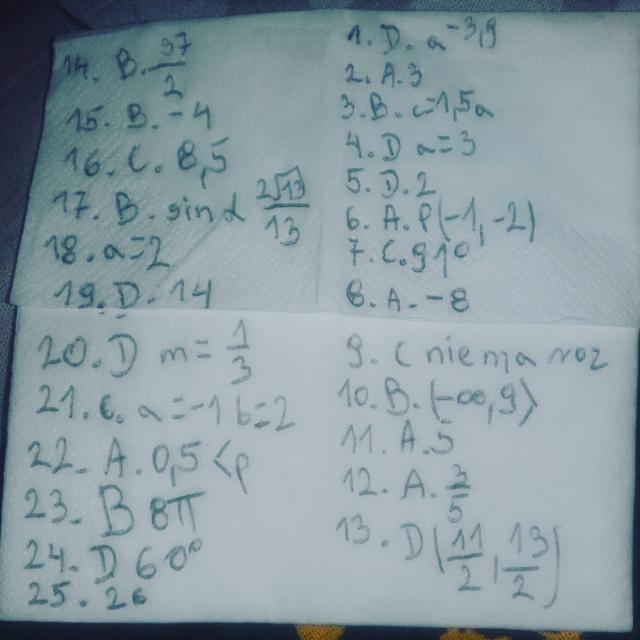 1. D. a⁻³'⁹
2. A. 3
3. B. c=1,5a
4. D a=3
5. D. 2
6. A. P(-1,-2)
7. C. 91°
8. A. -8
9. C nie ma roz
10. B. (-∞,9⟩
11. A. 5
12. A. 2/5
13. D (11/2, 13/2)
14. B. 37/2
15. B. -4
16. C. 8,5
17. B. sin α 2√13/13
18. a=2
19. D. 14
20. D m = 1/3
21. C. a=-1 b=2
22. A. 0,5 <p
23. B 8π
24. D 60°
25. 26